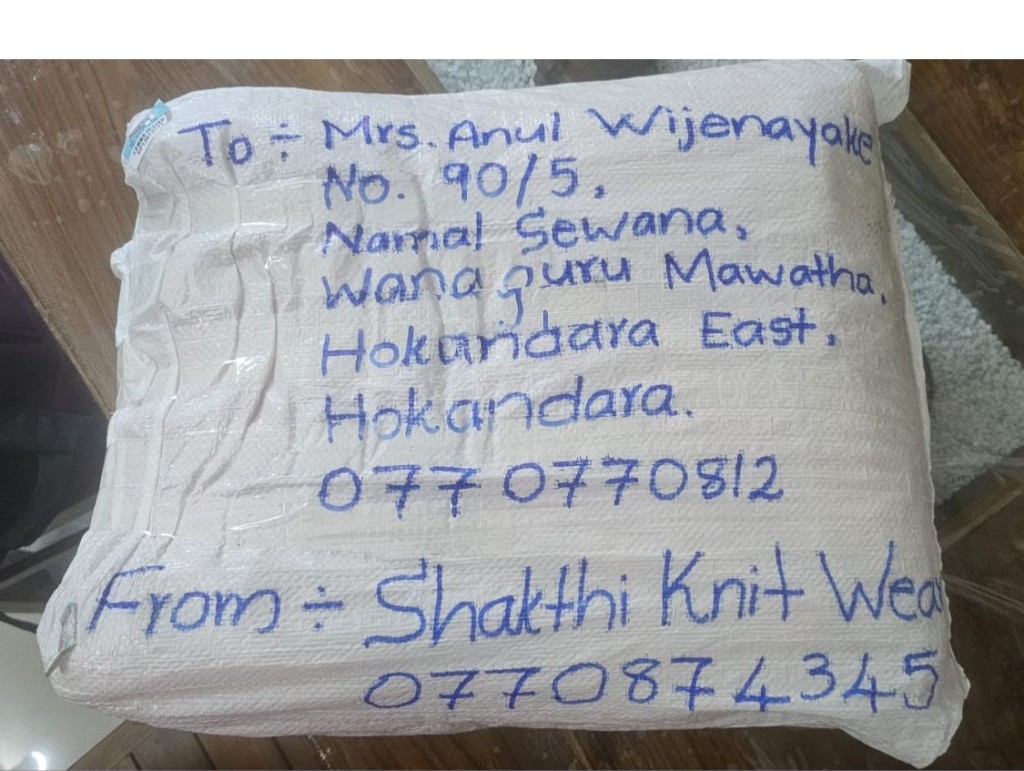 To ÷ Mrs. Anul Wijenayake
No. 90/5,
Namal Sewana,
Wanaguru Mawatha,
Hokandara East,
Hokandara.
077 0770812
From ÷ Shakthi Knit Wea
0770874345